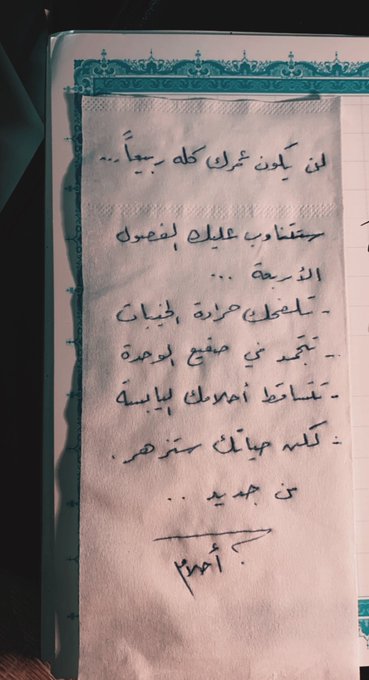 لن يكون عمرك كله ربيعاً...
ستتناوب عليك الفصول
الأربعة ...
- تلفحك حرارة الخيبات
- تتجمد في صقيع الوحدة
- تتساقط أحلامك اليابسة
- لكن حياتك ستزهر .
من جديد ..
أحلام